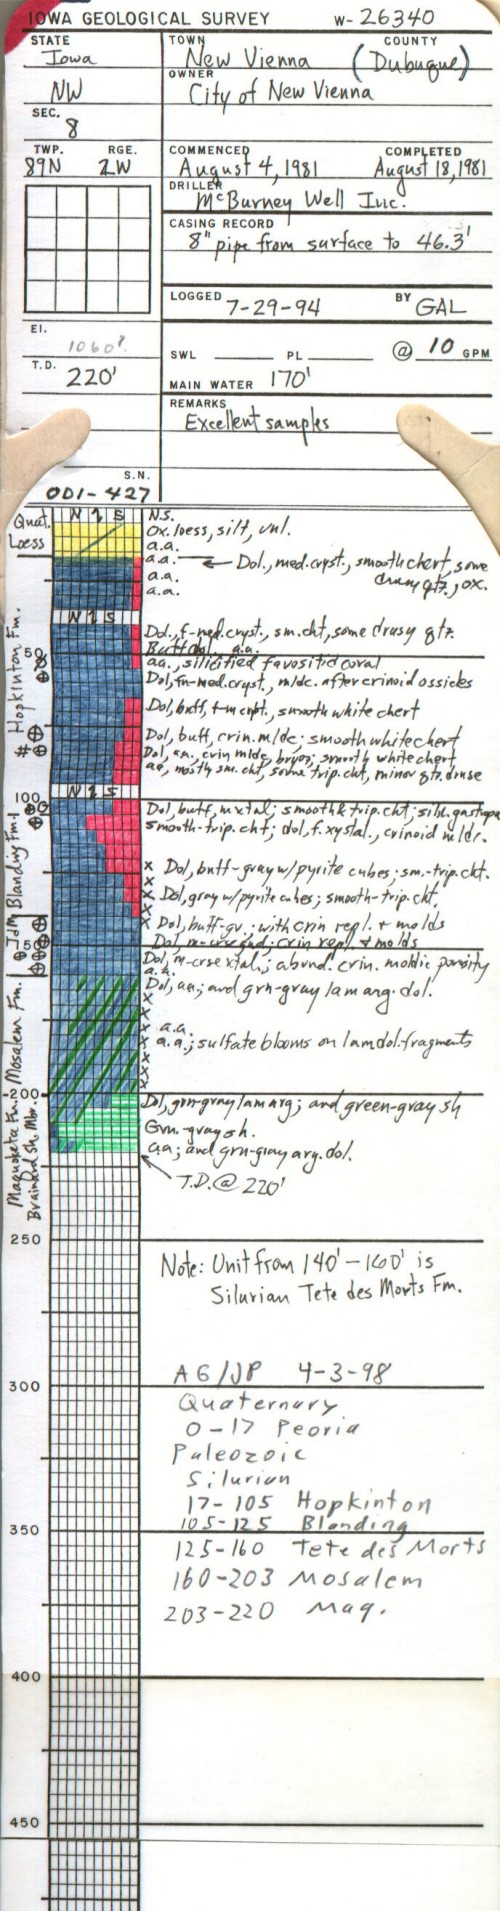 IOWA GEOLOGICAL SURVEY W- 26340
STATE TOWN COUNTY
Iowa New Vienna (Dubuque)
OWNER
NW City of New Vienna
SEC.
8
TWP. RGE. COMMENCED COMPLETED
89N 2W August 4, 1981 August 18, 1981
DRILLER
McBurney Well Inc.
CASING RECORD
8" pipe from surface to 46.3'
LOGGED 7-29-94 BY GAL
El.
1060'
SWL PL @ 10 GPM
T.D.
220' MAIN WATER 170'
REMARKS
Excellent samples
S.N.
OD1-427
N 2 S N.S.
Quat. Ox. loess, silt, unl.
Loess a.a.
a.a. ← Dol., med. cryst., smooth chert, some
a.a. drusy qtz., ox.
a.a.
N 2 S
Hopkinton Fm.
Dol., f-med. cryst., sm. cht, some drusy qtz.
Buff dol., a.a.
50 aa., silicified favositid coral
Dol, fn-med. cryst., mldc. after crinoid ossicles
Dol, buff, f-m cryst., smooth white chert
Dol, buff, crin. mldc; smooth white chert
Dol, aa., crin mldc, bryoz, smooth white chert
aa, mostly sm. cht, some trip. cht, minor qtz. druse
N 2 S
100
Dol, buff, mxtal; smooth & trip. cht; silic. gastropod
smooth-trip. cht; dol, f. xystal., crinoid mldc.
Blanding Fm.
x Dol, buff-gray w/pyrite cubes; sm.-trip. cht.
x Dol, gray w/pyrite cubes; smooth-trip. cht.
TdM
x Dol, buff-gr.; with crin repl. & molds
150 Dol, m-crse gnd; crin repl. & molds
Dol, m-crse xtal.; abund. crin. moldic porosity
a.a.
Mosalem Fm.
Dol, aa; and grn-gray lam arg. dol.
x a.a.
x a.a.; sulfate blooms on lam dol. fragments
200
Dol, grn-gray lam arg; and green-gray sh
Maquoketa Fm.
Brainard Sh. Mbr.
Grn-gray sh.
aa; and grn-gray arg. dol.
T.D. @ 220'
250
Note: Unit from 140'-160' is
Silurian Tete des Morts Fm.
AG/JP 4-3-98
300
Quaternary
0-17 Peoria
Paleozoic
Silurian
17-105 Hopkinton
105-125 Blanding
350
125-160 Tete des Morts
160-203 Mosalem
203-220 Maq.
400
450